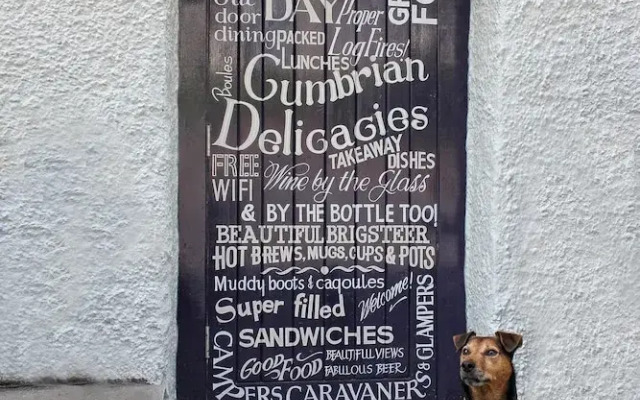 door
DAY
Proper
dining
PACKED
Log Fires!
LUNCHES
Boules
Cumbrian
Delicacies
TAKEAWAY
DISHES
FREE
WIFI
Wine by the Glass
& BY THE BOTTLE TOO!
BEAUTIFUL BRIGSTEER
HOT BREWS, MUGS, CUPS & POTS
Muddy boots & cagoules
Welcome!
Super filled
SANDWICHES
GOOD FOOD
BEAUTIFUL VIEWS
FABULOUS BEER
CAMPERS CARAVANERS & GLAMPERS